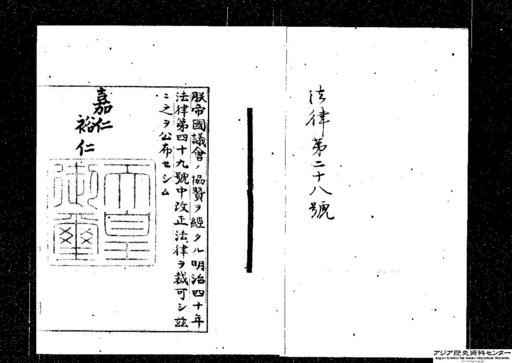 法律第二十八號
朕帝國議會ノ協贊ヲ經タル明治四十年
法律第四十九號中改正法律ヲ裁可シ玆
ニ之ヲ公布セシム
嘉仁
裕仁
天皇
御璽
アジア歴史資料センター
Japan Center for Asian Historical Records